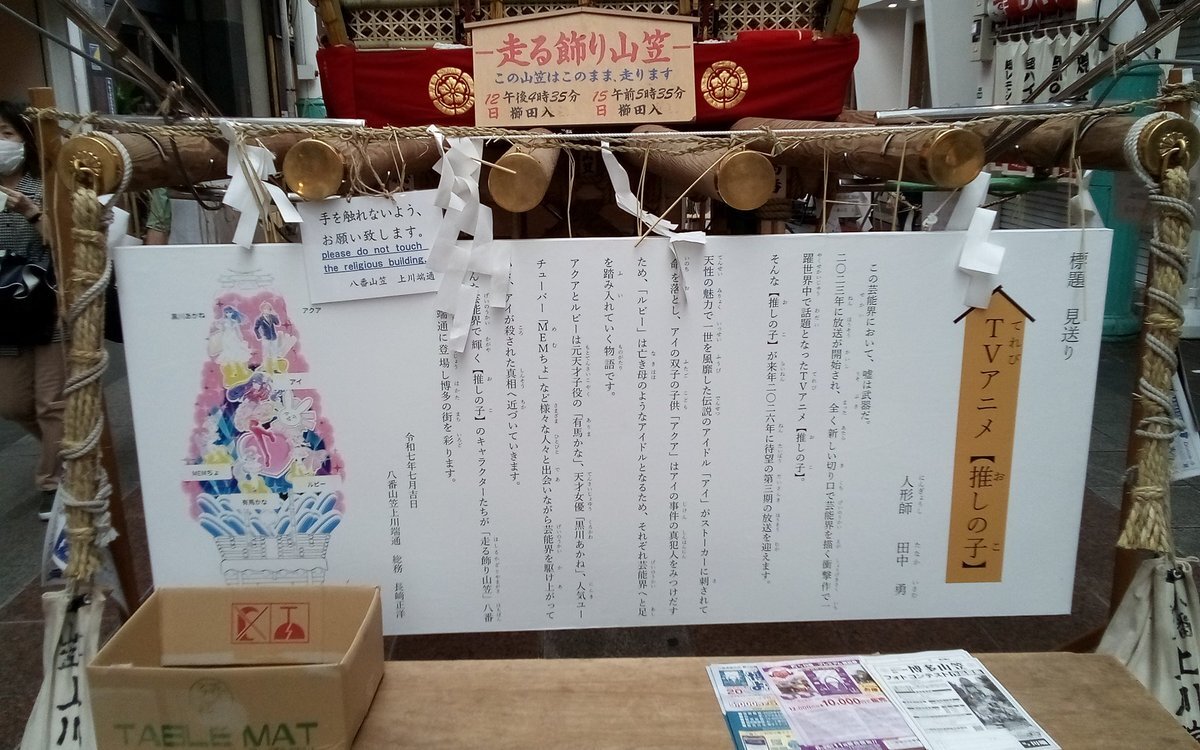 走る飾り山笠
この山笠はこのまま、走ります
12日 午後4時35分 櫛田入
15日 午前5時35分 櫛田入
手を触れないよう、
お願い致します。
please do not touch
the religious building.
八番山笠 上川端通
標題 見送り
TVアニメ【推しの子】
人形師 田中 勇
この芸能界において、嘘は武器だ。
二〇二三年に放送が開始され、全く新しい切り口で芸能界を描く衝撃作で一
躍世界中で話題となったTVアニメ【推しの子】。
そんな【推しの子】が来年二〇二六年に待望の第三期の放送を迎えます。
天性の魅力で一世を風靡した伝説のアイドル「アイ」がストーカーに刺されて
命を落とし、アイの双子の子供「アクア」はアイの事件の真犯人をみつけだす
ため、「ルビー」は亡き母のようなアイドルとなるため、それぞれ芸能界へと足
を踏み入れていく物語です。
アクアとルビーは元天才子役の「有馬かな」、天才女優「黒川あかね」、人気ユー
チューバー「MEMちょ」など様々な人々と出会いながら芸能界を駆け上がって
アイが殺された真相へ近づいていきます。
芸能界で輝く【推しの子】のキャラクターたちが「走る飾り山笠」八番
端通に登場し博多の街を彩ります。
令和七年七月吉日
八番山笠上川端通 総務 長﨑正洋
黒川あかね
アクア
アイ
MEMちょ
ルビー
有馬かな
TABLE MAT
博多山笠
フォトコンテスト
10,000